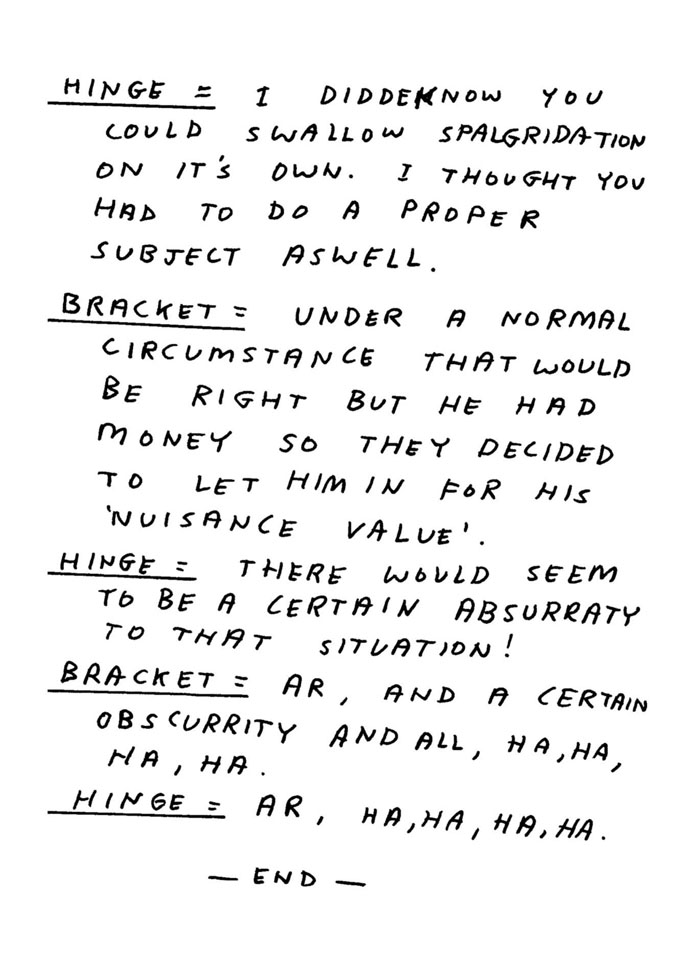 HINGE = I DIDDEKNOW YOU
COULD SWALLOW SPALGRIDATION
ON IT'S OWN. I THOUGHT YOU
HAD TO DO A PROPER
SUBJECT ASWELL.
BRACKET = UNDER A NORMAL
CIRCUMSTANCE THAT WOULD
BE RIGHT BUT HE HAD
MONEY SO THEY DECIDED
TO LET HIM IN FOR HIS
'NUISANCE VALUE'.
HINGE = THERE WOULD SEEM
TO BE A CERTAIN ABSURRATY
TO THAT SITUATION!
BRACKET = AR, AND A CERTAIN
OBSCURRITY AND ALL, HA, HA,
HA, HA.
HINGE = AR, HA, HA, HA, HA.
— END —